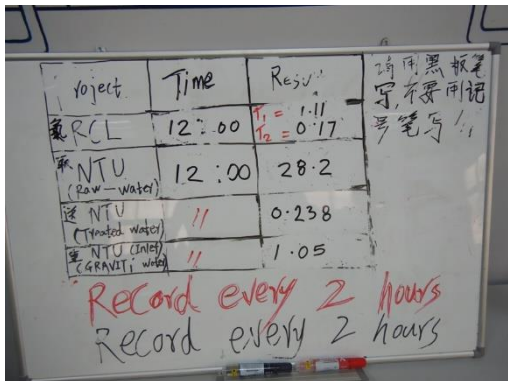 Project Time Resu
氯 RCL 12:00 T₁ = 1.11
T₂ = 0.17
取 NTU (Raw-water) 12:00 28.2
送 NTU (Treated water) 〃 0.238
NTU (Inlet) (GRAVITi water) 〃 1.05
请用黑板笔
写,不要用记
号笔写!
Record every 2 hours
Record every 2 hours